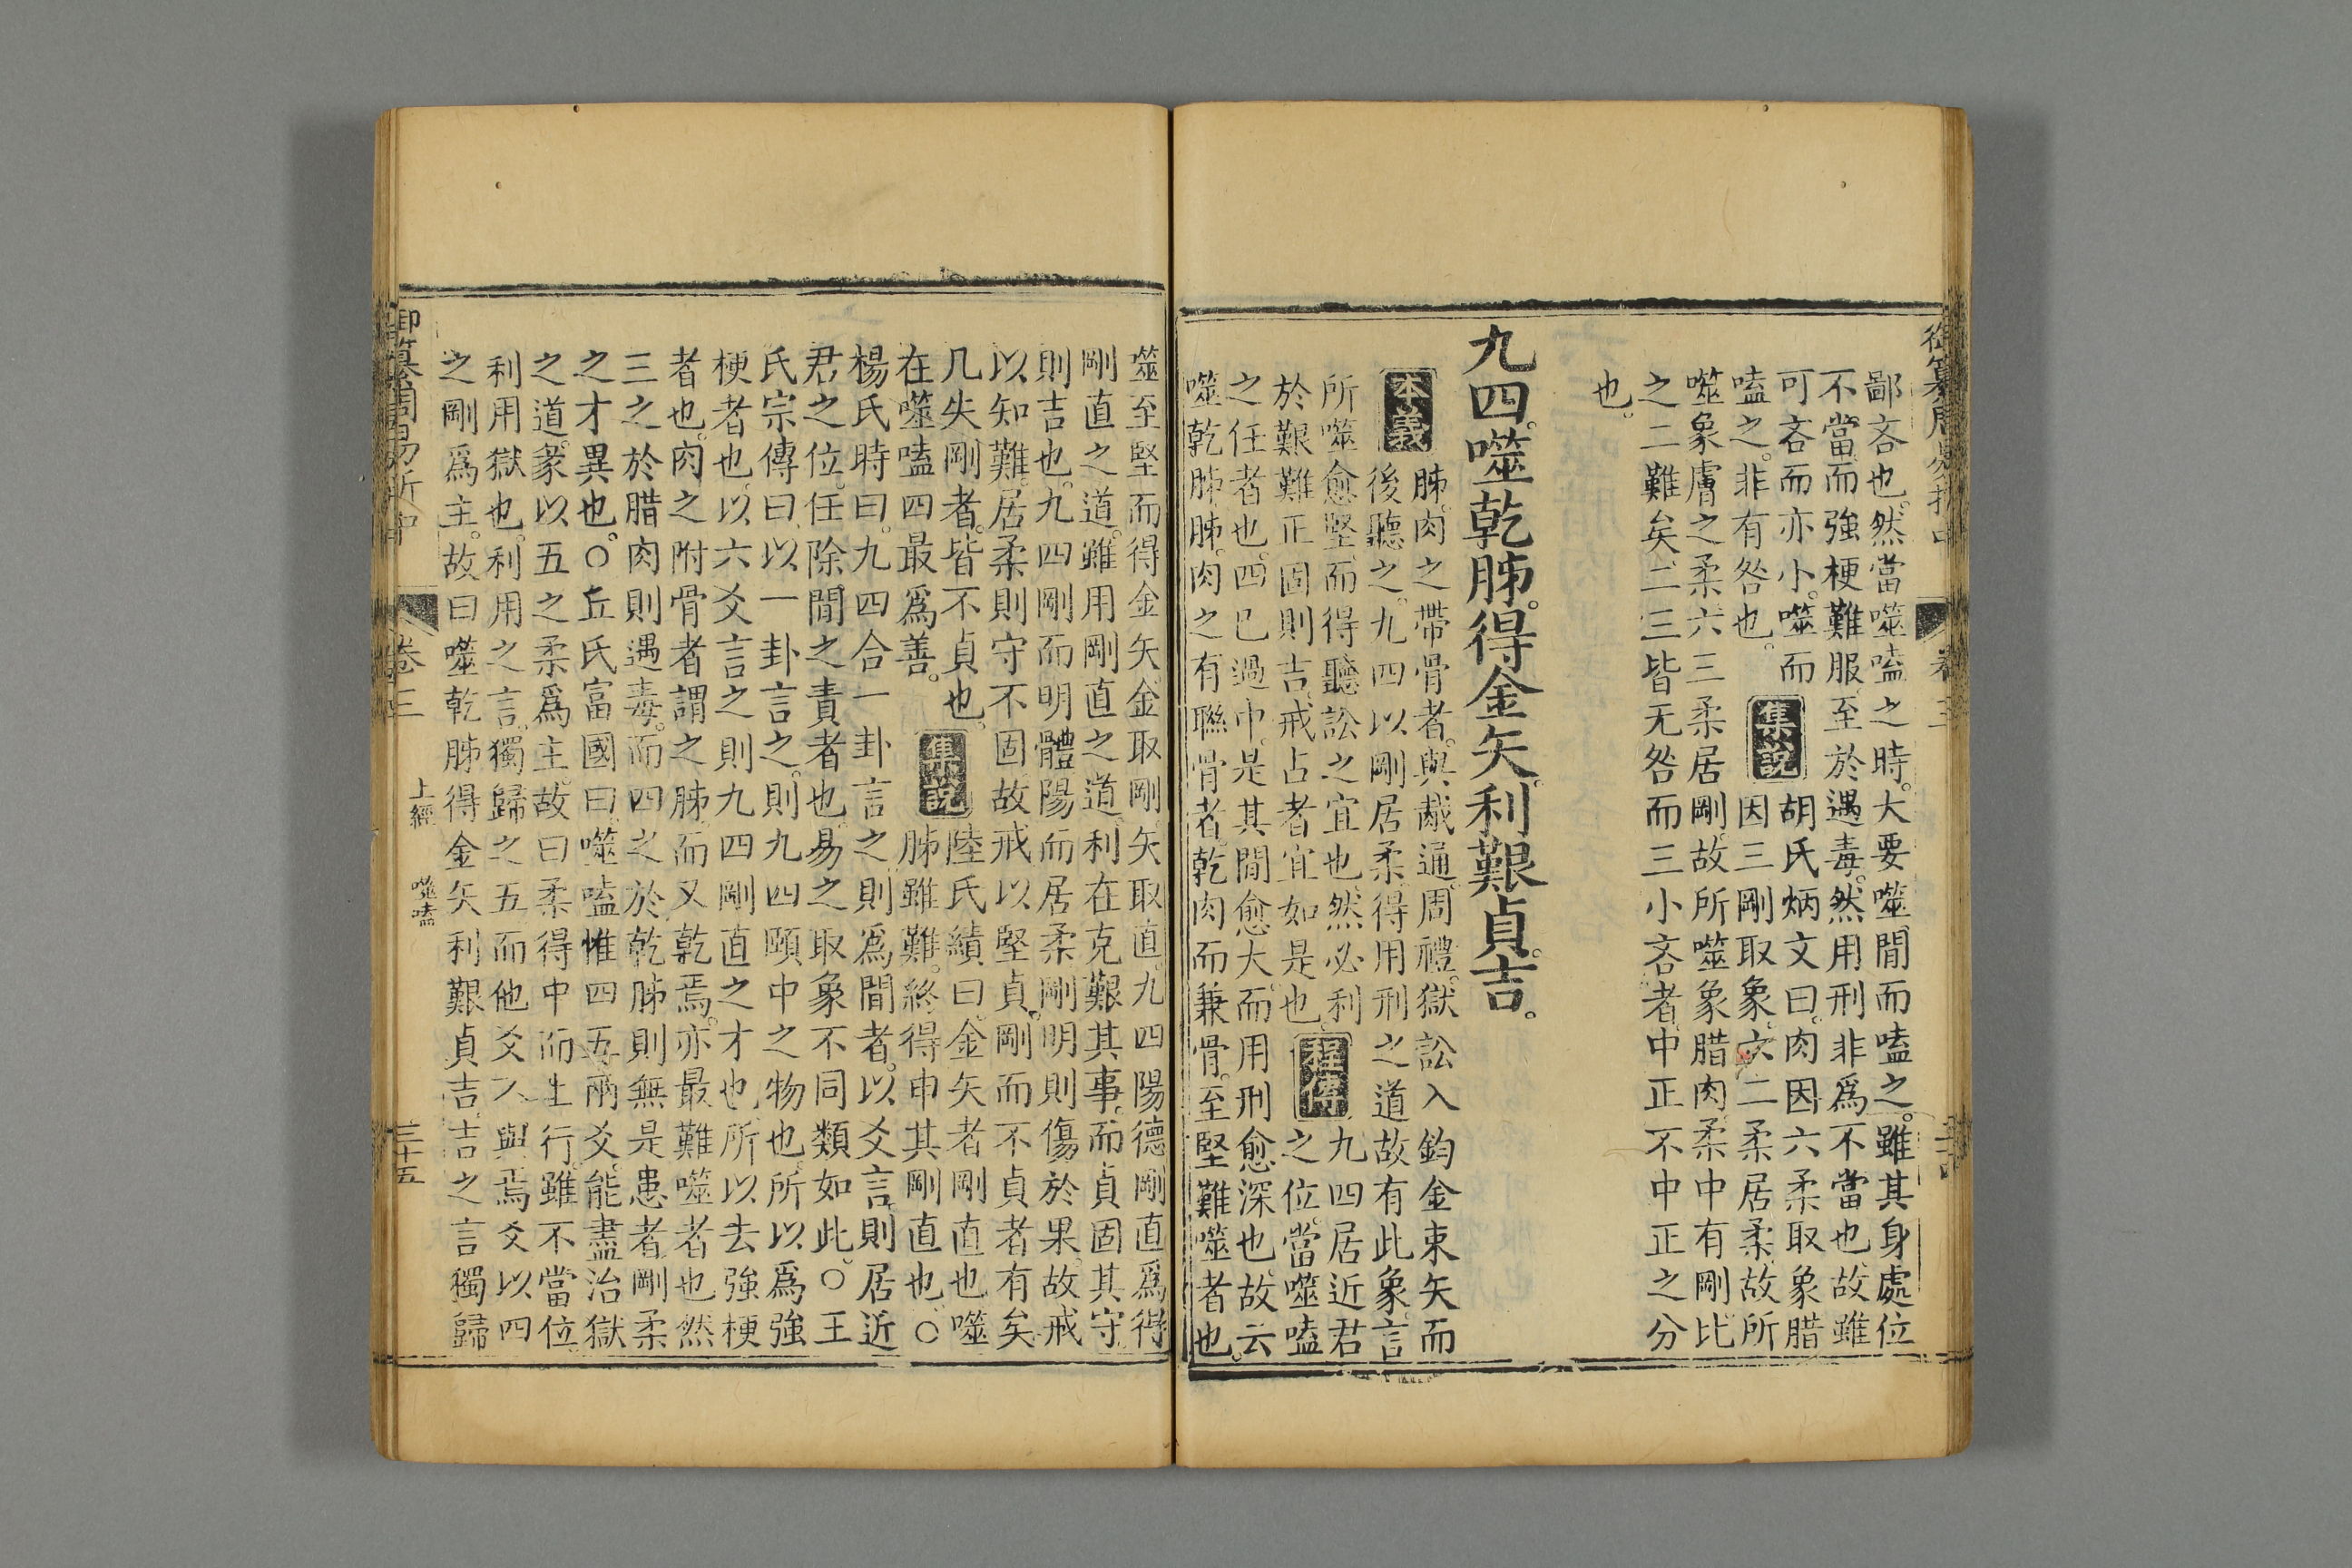 鄙吝也。然當噬嗑之時。大要噬閒而嗑之。雖其身處位
不當。而強梗難服。至於遇毒。然用刑非爲不當也。故雖
可吝而亦小。噬而
嗑之。非有咎也。
集說
胡氏炳文曰。肉因六柔取象。腊
因三剛取象。六二柔居柔。故所
噬象膚之柔。六三柔居剛。故所噬象腊肉。柔中有剛。比
之二難矣。二三皆无咎。而三小吝者。中正不中正之分
也。
九四。噬乾胏。得金矢。利艱貞。吉。
本義
胏。肉之帶骨者。與胾通。周禮。獄訟入鈞金束矢而
後聽之。九四以剛居柔。得用刑之道。故有此象。言
所噬愈堅。而得聽訟之宜也。然必利
於艱難正固則吉。戒占者宜如是也。
程傳
九四居近君
之位。當噬嗑
之任者也。四已過中。是其閒愈大。而用刑愈深也。故云
噬乾胏。胏。肉之有聯骨者。乾肉而兼骨。至堅難噬者也。
噬至堅而得金矢。金取剛。矢取直。九四陽德剛直。爲得
剛直之道。雖用剛直之道。利在克艱其事。而貞固其守。
則吉也。九四剛而明體。陽而居柔。剛明則傷於果。故戒
以知難。居柔則守不固。故戒以堅貞。剛而不貞者有矣。
凡失剛者。皆不貞也。
在噬嗑四最爲善。
集說
陸氏績曰。金矢者。剛直也。噬
胏雖難。終得申其剛直也。○
楊氏時曰。九四合一卦言之。則爲閒者。以爻言。則居近
君之位。任除閒之責者也。易之取象不同類如此。○王
氏宗傳曰。以一卦言之。則九四頤中之物也。所以爲強
梗者也。以六爻言之。則九四剛直之才也。所以去強梗
者也。肉之附骨者謂之胏。而又乾焉。亦最難噬者也。然
三之於腊肉則遇毒。而四之於乾胏則無是患者。剛柔
之才異也。○丘氏富國曰。噬嗑惟四五兩爻。能盡治獄
之道。彖以五之柔爲主。故曰柔得中而上行。雖不當位。
利用獄也。利用之言。獨歸之五。而他爻不與焉。爻以四
之剛爲主。故曰噬乾胏得金矢利艱貞吉。吉之言獨歸
御纂周易折中
卷三
上經
噬嗑
三十五